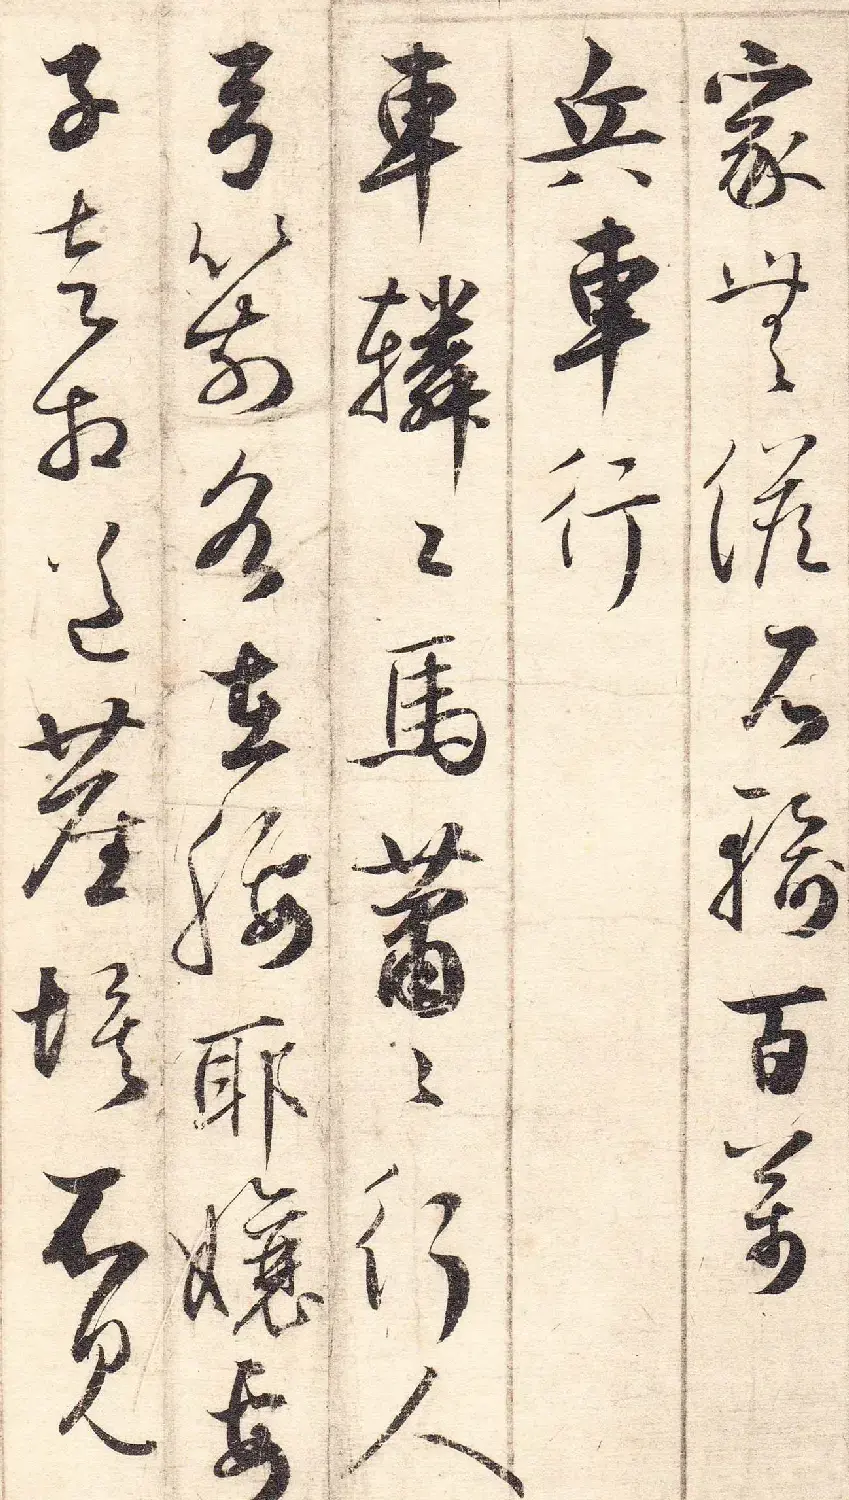 家無儋石輸百萬
兵車行
車轔〻馬蕭〻行人
弓箭各在腰耶孃妻
子走相送塵埃不見